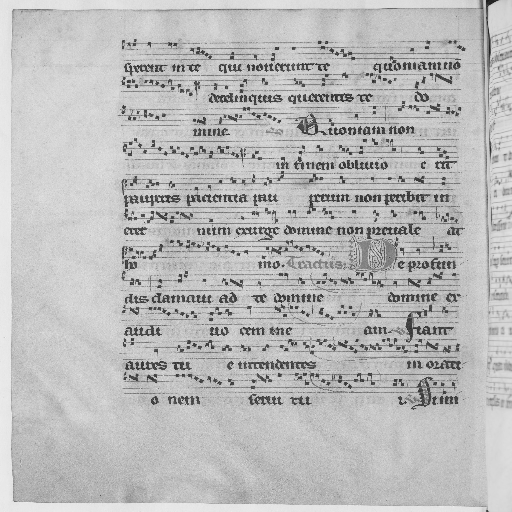 sperent in te qui noverunt te quoniam no
derelinquis querentes te do
mine Quoniam non
in finem oblivio e rit
pauperis patientia pau perum non peribit in
eter num exurge domine non prevale at
ho mo. Tractus. De profun
dis clamavi ad te domine domine ex
audi vo cem me am. Fiant
aures tu e intendentes in orati
o nem servi tu i. Si in